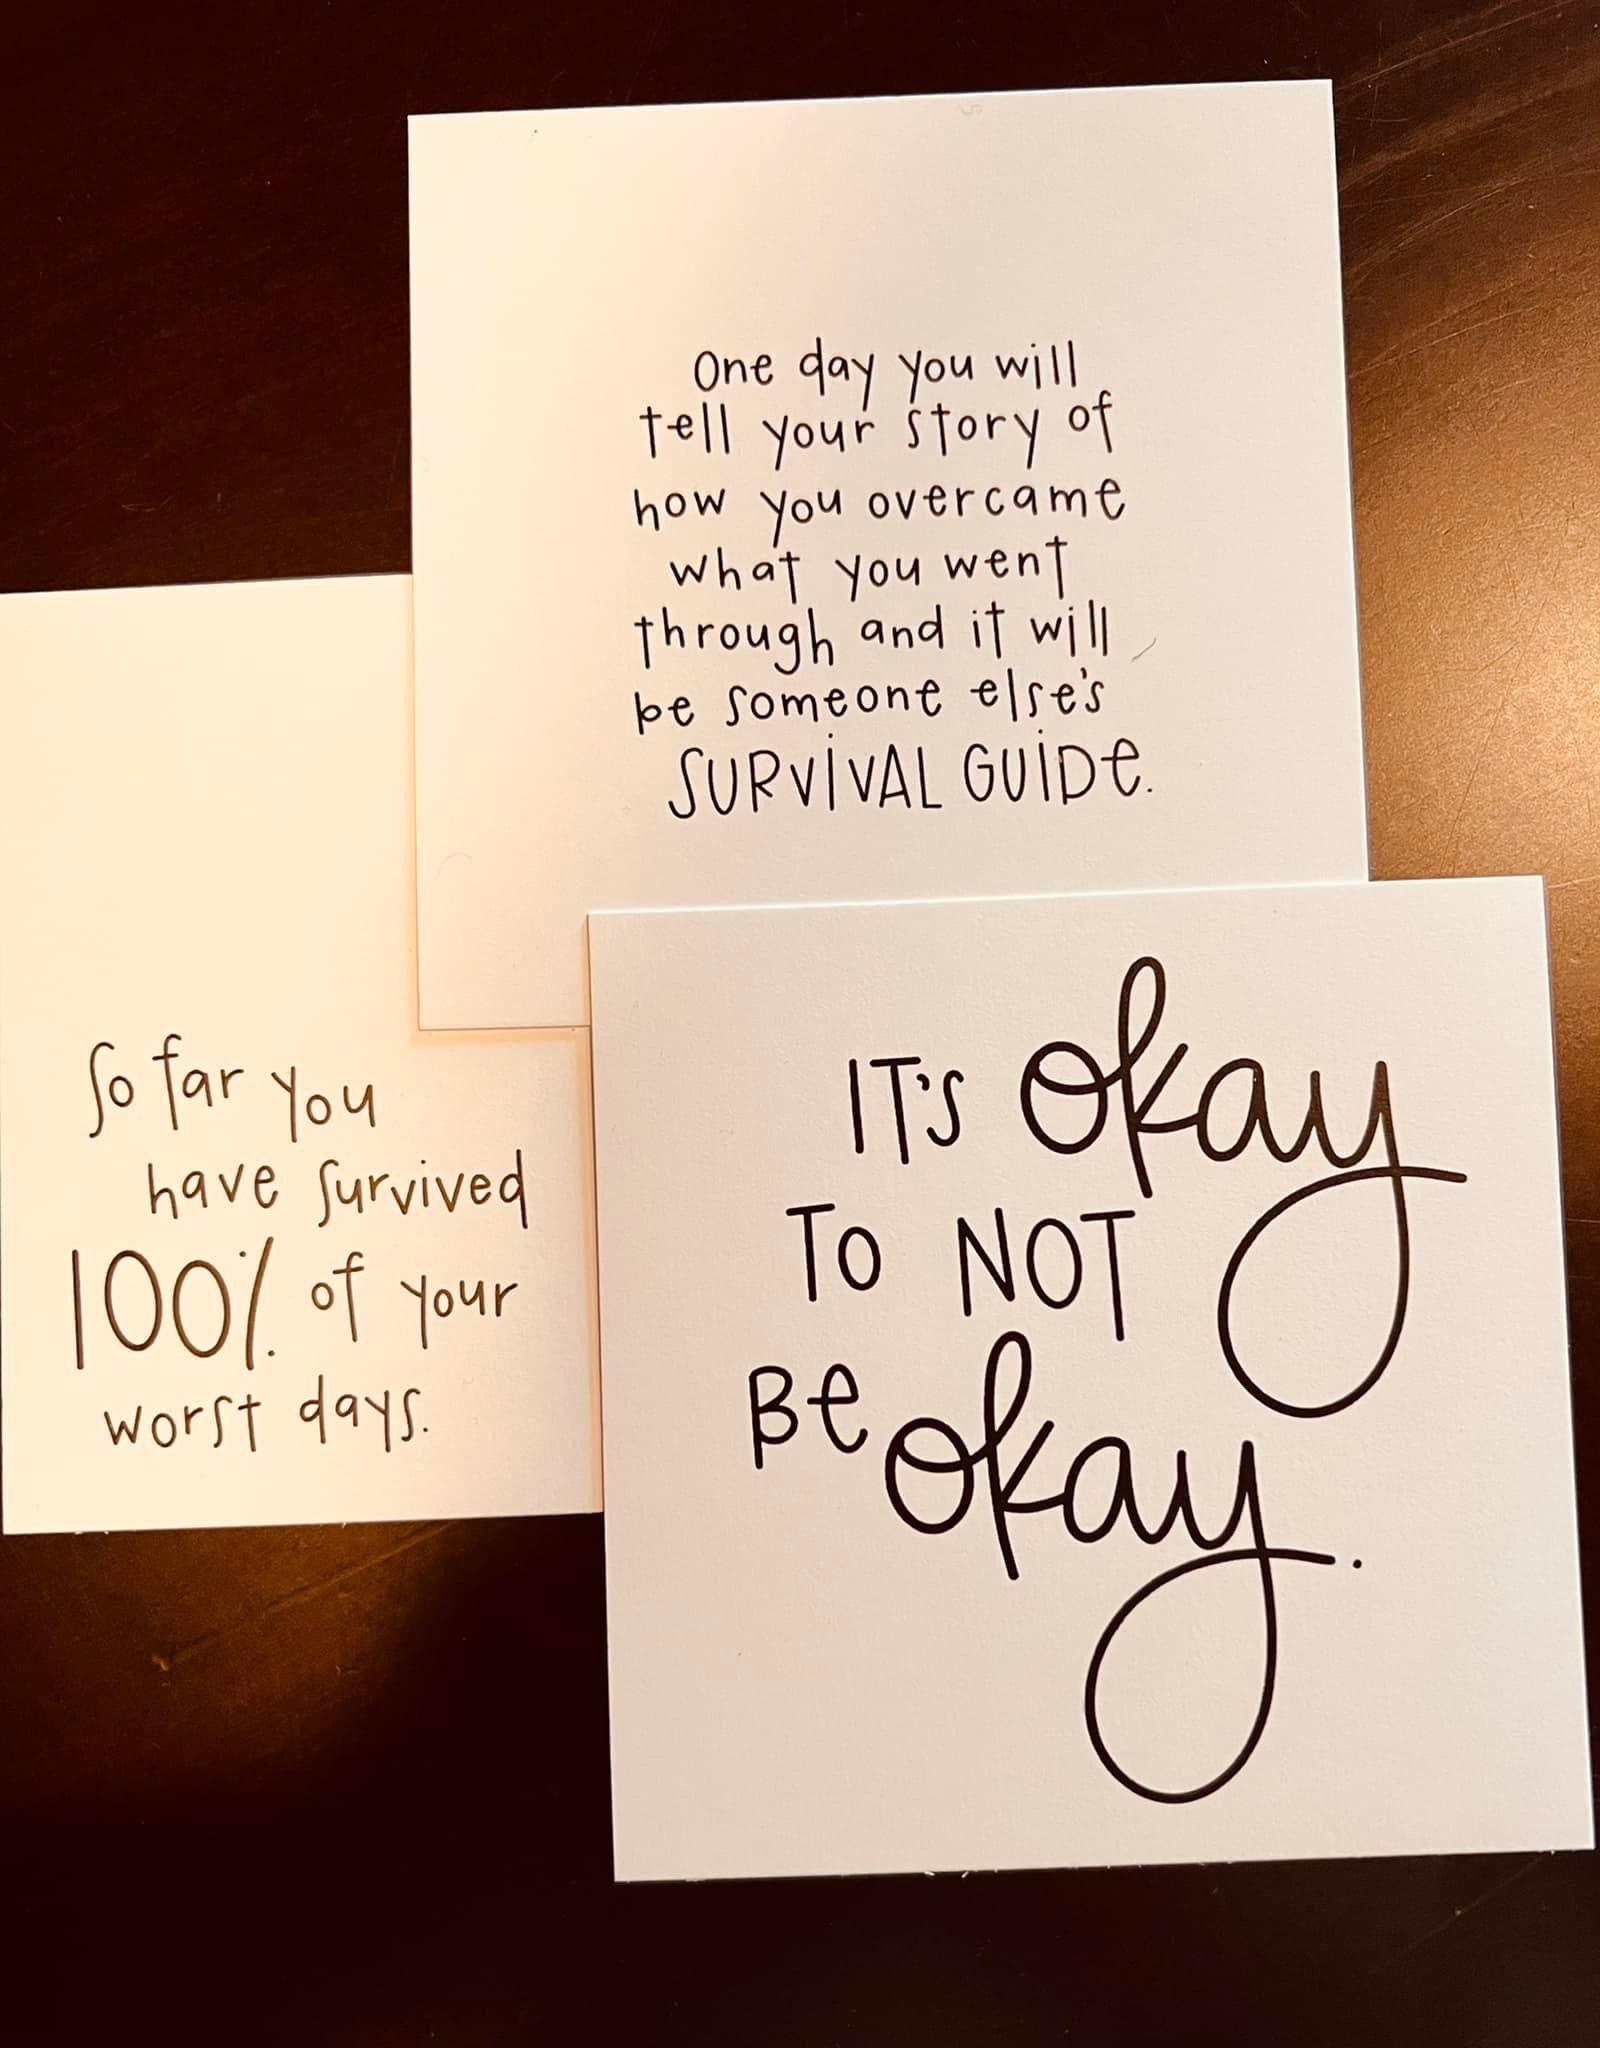 One day you will
tell your story of
how you overcame
what you went
through and it will
be someone else's
SURVIVAL GUIDE.
So far you
have survived
100% of your
worst days.
IT'S okay
TO NOT
Be okay.